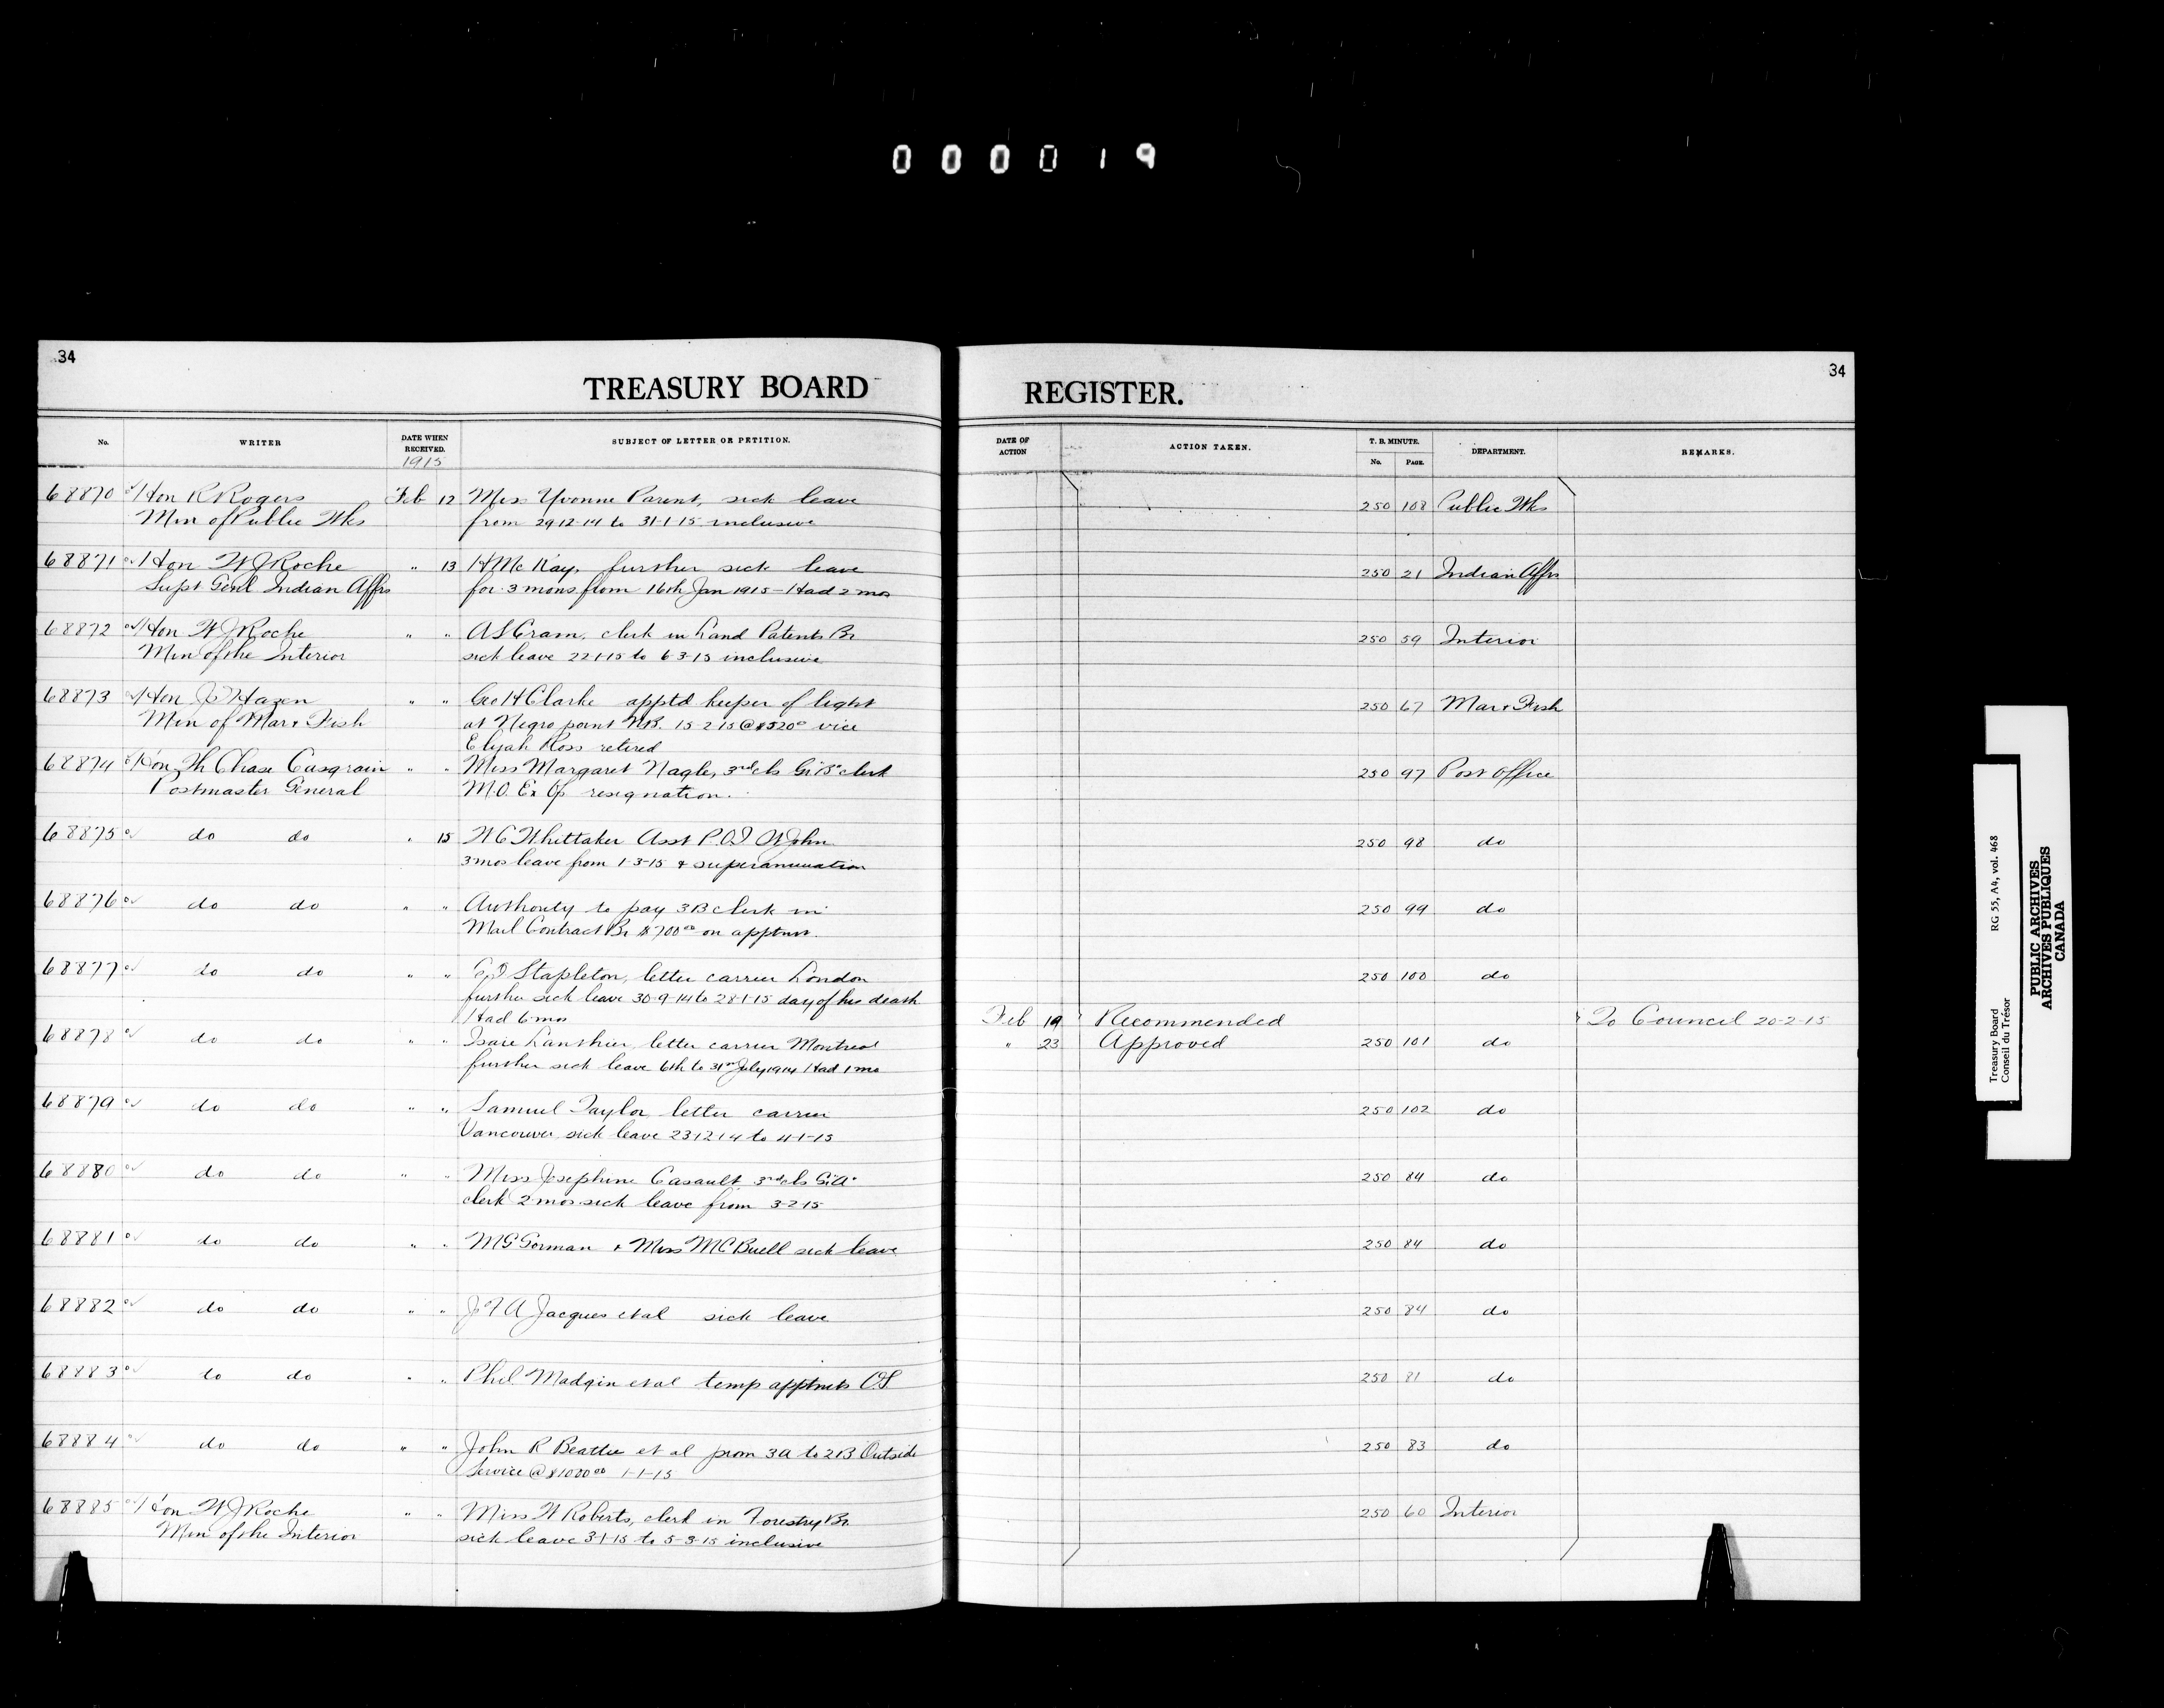 000019
34
TREASURY BOARD
REGISTER.
34
No.
WRITER
DATE WHEN RECEIVED.
1915
SUBJECT OF LETTER OR PETITION.
DATE OF ACTION
ACTION TAKEN.
T. B. MINUTE.
No. PAGE.
DEPARTMENT.
REMARKS.
68870 Hon R Rogers Feb 12 Miss Yvonne Parent, sick leave 250 108 Public Wks
Min of Public Wks from 29-12-14 to 31-1-15 inclusive
68871 Hon W J Roche " 13 H McKay, further sick leave 250 21 Indian Affrs
Supt Genl Indian Affrs for 3 mons from 16th Jan 1915 - Had 2 mos
68872 Hon W J Roche " " A S Cram, clerk in Land Patents Br 250 59 Interior
Min of the Interior sick leave 22-1-15 to 6-3-15 inclusive
68873 Hon J D Hazen " " Geo H Clarke apptd keeper of light 250 67 Mar & Fish
Min of Mar & Fish at Negro point N.B. 15-2-15 @ $520 vice
Elijah Ross retired
68874 Hon Th Chase Casgrain " " Miss Margaret Nagle, 3rd cls Gr "B" clerk 250 97 Post Office
Postmaster General M.O. Ex Of resignation.
68875 do do " 15 W C Whittaker Asst P.O.I St John 250 98 do
3 mos leave from 1-3-15 & superannuation
68876 do do " " Authority to pay 3B clerk in 250 99 do
Mail Contract Br $700 00 on apptmt.
68877 do do " " Stapleton, letter carrier London 250 100 do
further sick leave 30-9-14 to 28-1-15 day of his death
Had 6 mos Feb 19 Recommended To Council 20-2-15
68878 do do " " Isaie Lanthier letter carrier Montreal " 23 Approved 250 101 do
further sick leave 6th to 31st July 1914 Had 1 mo
68879 do do " " Samuel Taylor letter carrier 250 102 do
Vancouver sick leave 23-12-14 to 4-1-15
68880 do do " " Miss Josephine Casault 3rd cls Gr "A" 250 84 do
clerk 2 mos sick leave from 3-2-15
68881 do do " " M G Gorman & Miss M C Buell sick leave 250 84 do
68882 do do " " J T A Jacques et al sick leave 250 84 do
68883 do do " " Phil Madgin et al temp apptmts OS 250 81 do
68884 do do " " John R Beattie et al prom 3A to 2B Outside 250 83 do
Service @ $1000 00 1-1-15
68885 Hon W J Roche " " Miss W Roberts, clerk in Forestry Br 250 60 Interior
Min of the Interior sick leave 3-1-15 to 5-3-15 inclusive
Treasury Board RG 55, A4, vol. 468
Conseil du Trésor
PUBLIC ARCHIVES
ARCHIVES PUBLIQUES
CANADA